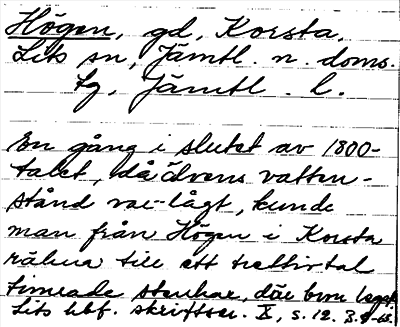 Högen, gd, Korsta,
Lits sn, Jämtl. n. doms.
tg, Jämtl. l.
En gång i slutet av 1800-
talet, då älvens vatten-
stånd var lågt, kunde
man från Högen i Korsta
räkna till ett trettiotal
timrade stenkar, där bron legat.
Lits hbf. skriftser. X, s. 12.